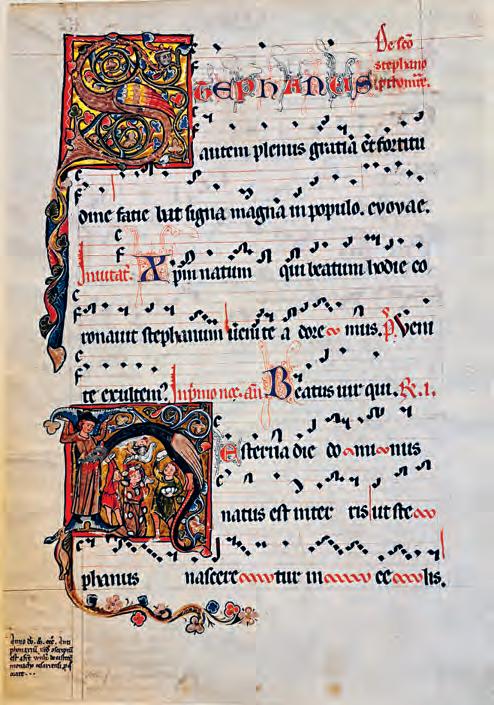 De sc̄o
STEPHANUS stephano
autem plenus gratia et fortitu
dine facie bat signa magna in populo. evovae.
Inuitat̄. Xp̄m natum qui beatum hodie co
ronauit stephanum uenite a dore mus. p̄s Veni
te exultem⁹. In prīmo noc̄. an̄. Beatus uir qui. R. I.
Hesterna die do mi nus
natus est inter ris ut ste
phanus nascere tur in ce lis.